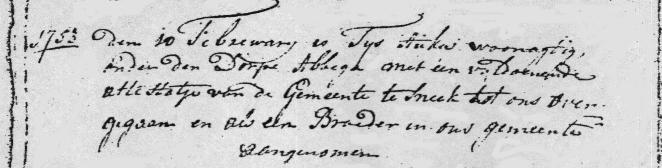 1753 den 10 Febrewary is Tys Aukes woonagtig,
onder den Dorpe Abbega met een v: Doenende
attestatje van de Gemeente te sneek tot ons over-
gegaan en als een Broeder in ons gemeente
aangenomen